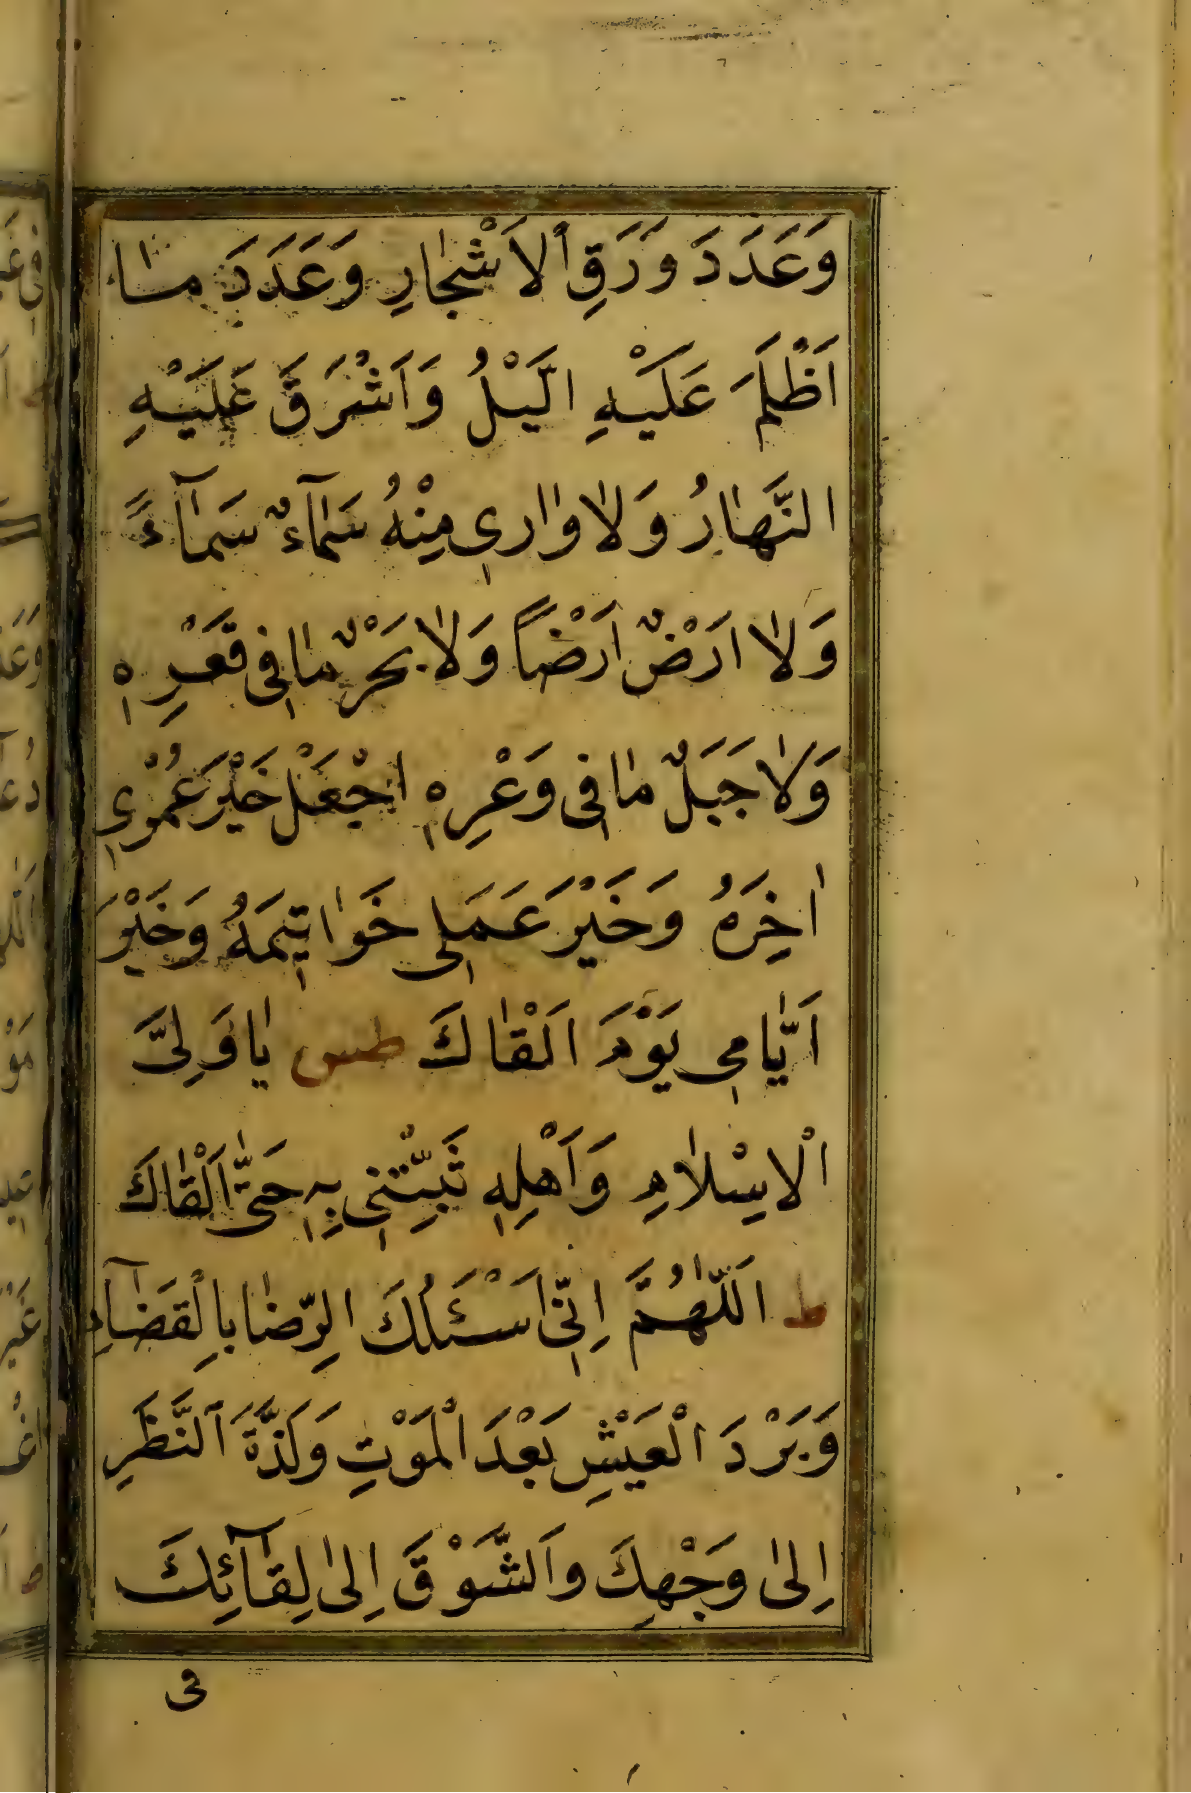 وَعَدَدَ وَرَقِ الْاَشْجَارِ وَعَدَدَ مَا
اَظْلَمَ عَلَيْهِ الَّيْلُ وَاَشْرَقَ عَلَيْهِ
النَّهَارُ وَلَا وَارِي مِنْهُ سَمَآءٌ سَمَآءً
وَلَا اَرْضٌ اَرْضًا وَلَا بَحْرٌ مَا فِي قَعْرِهِ
وَلَا جَبَلٌ مَا فِي وَعْرِهِ اجْعَلْ خَيْرَ عُمْرِي
اٰخِرَهُ وَخَيْرَ عَمَلِي خَوَاتِيمَهُ وَخَيْرَ
اَيَّامِي يَوْمَ اَلْقَاكَ طس يَا وَلِىَّ
الْاِسْلَامِ وَاَهْلِهِ ثَبِّتْنِي بِهِ حَتّٰى اَلْقَاكَ
ط اَللّٰهُمَّ اِنِّي اَسْئَلُكَ الرِّضَا بِالْقَضَآءِ
وَبَرْدَ الْعَيْشِ بَعْدَ الْمَوْتِ وَلَذَّةَ النَّظَرِ
اِلٰى وَجْهِكَ وَالشَّوْقَ اِلٰى لِقَآئِكَ
فى